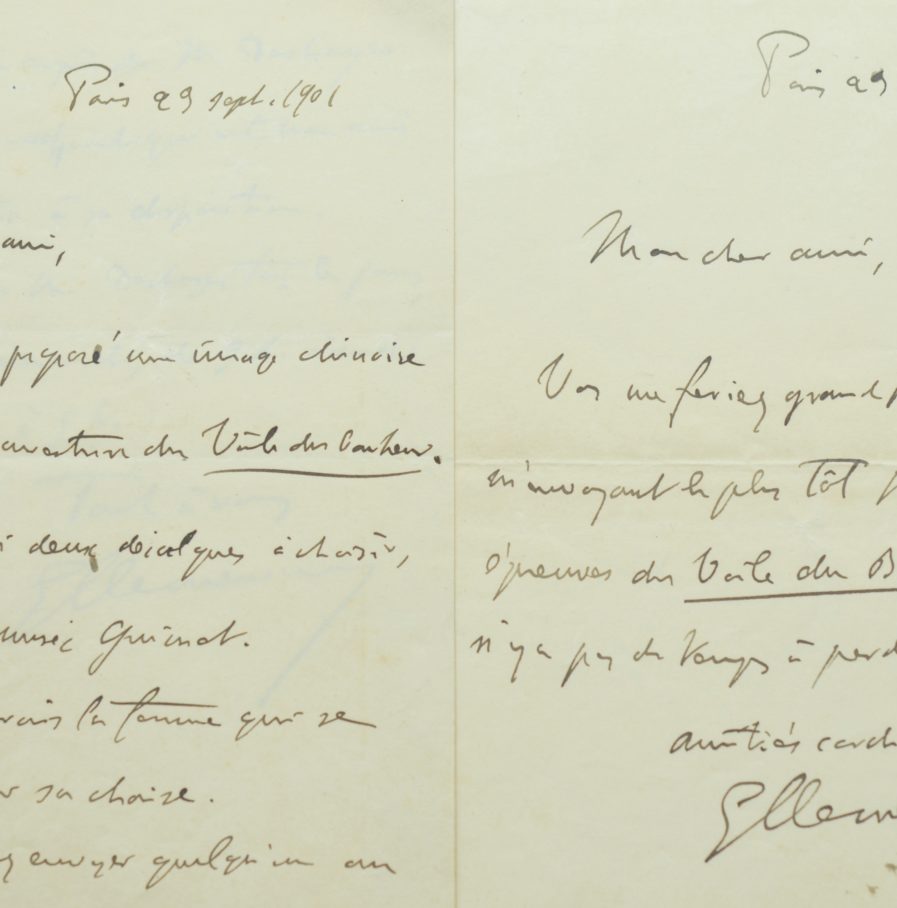 Paris 29 sept. 1901
ami,
proposé une image chinoise
couverture du Voile du bonheur.
deux décalques à choisir,
musée Guimet.
la femme qui se
sa chaise.
envoyer quelqu'un au
Paris 29
Mon cher ami,
Vous me feriez grand
m'envoyant le plus tôt
épreuves du Voile du B
n'y a pas de temps à perd
amitiés cord
GClemen